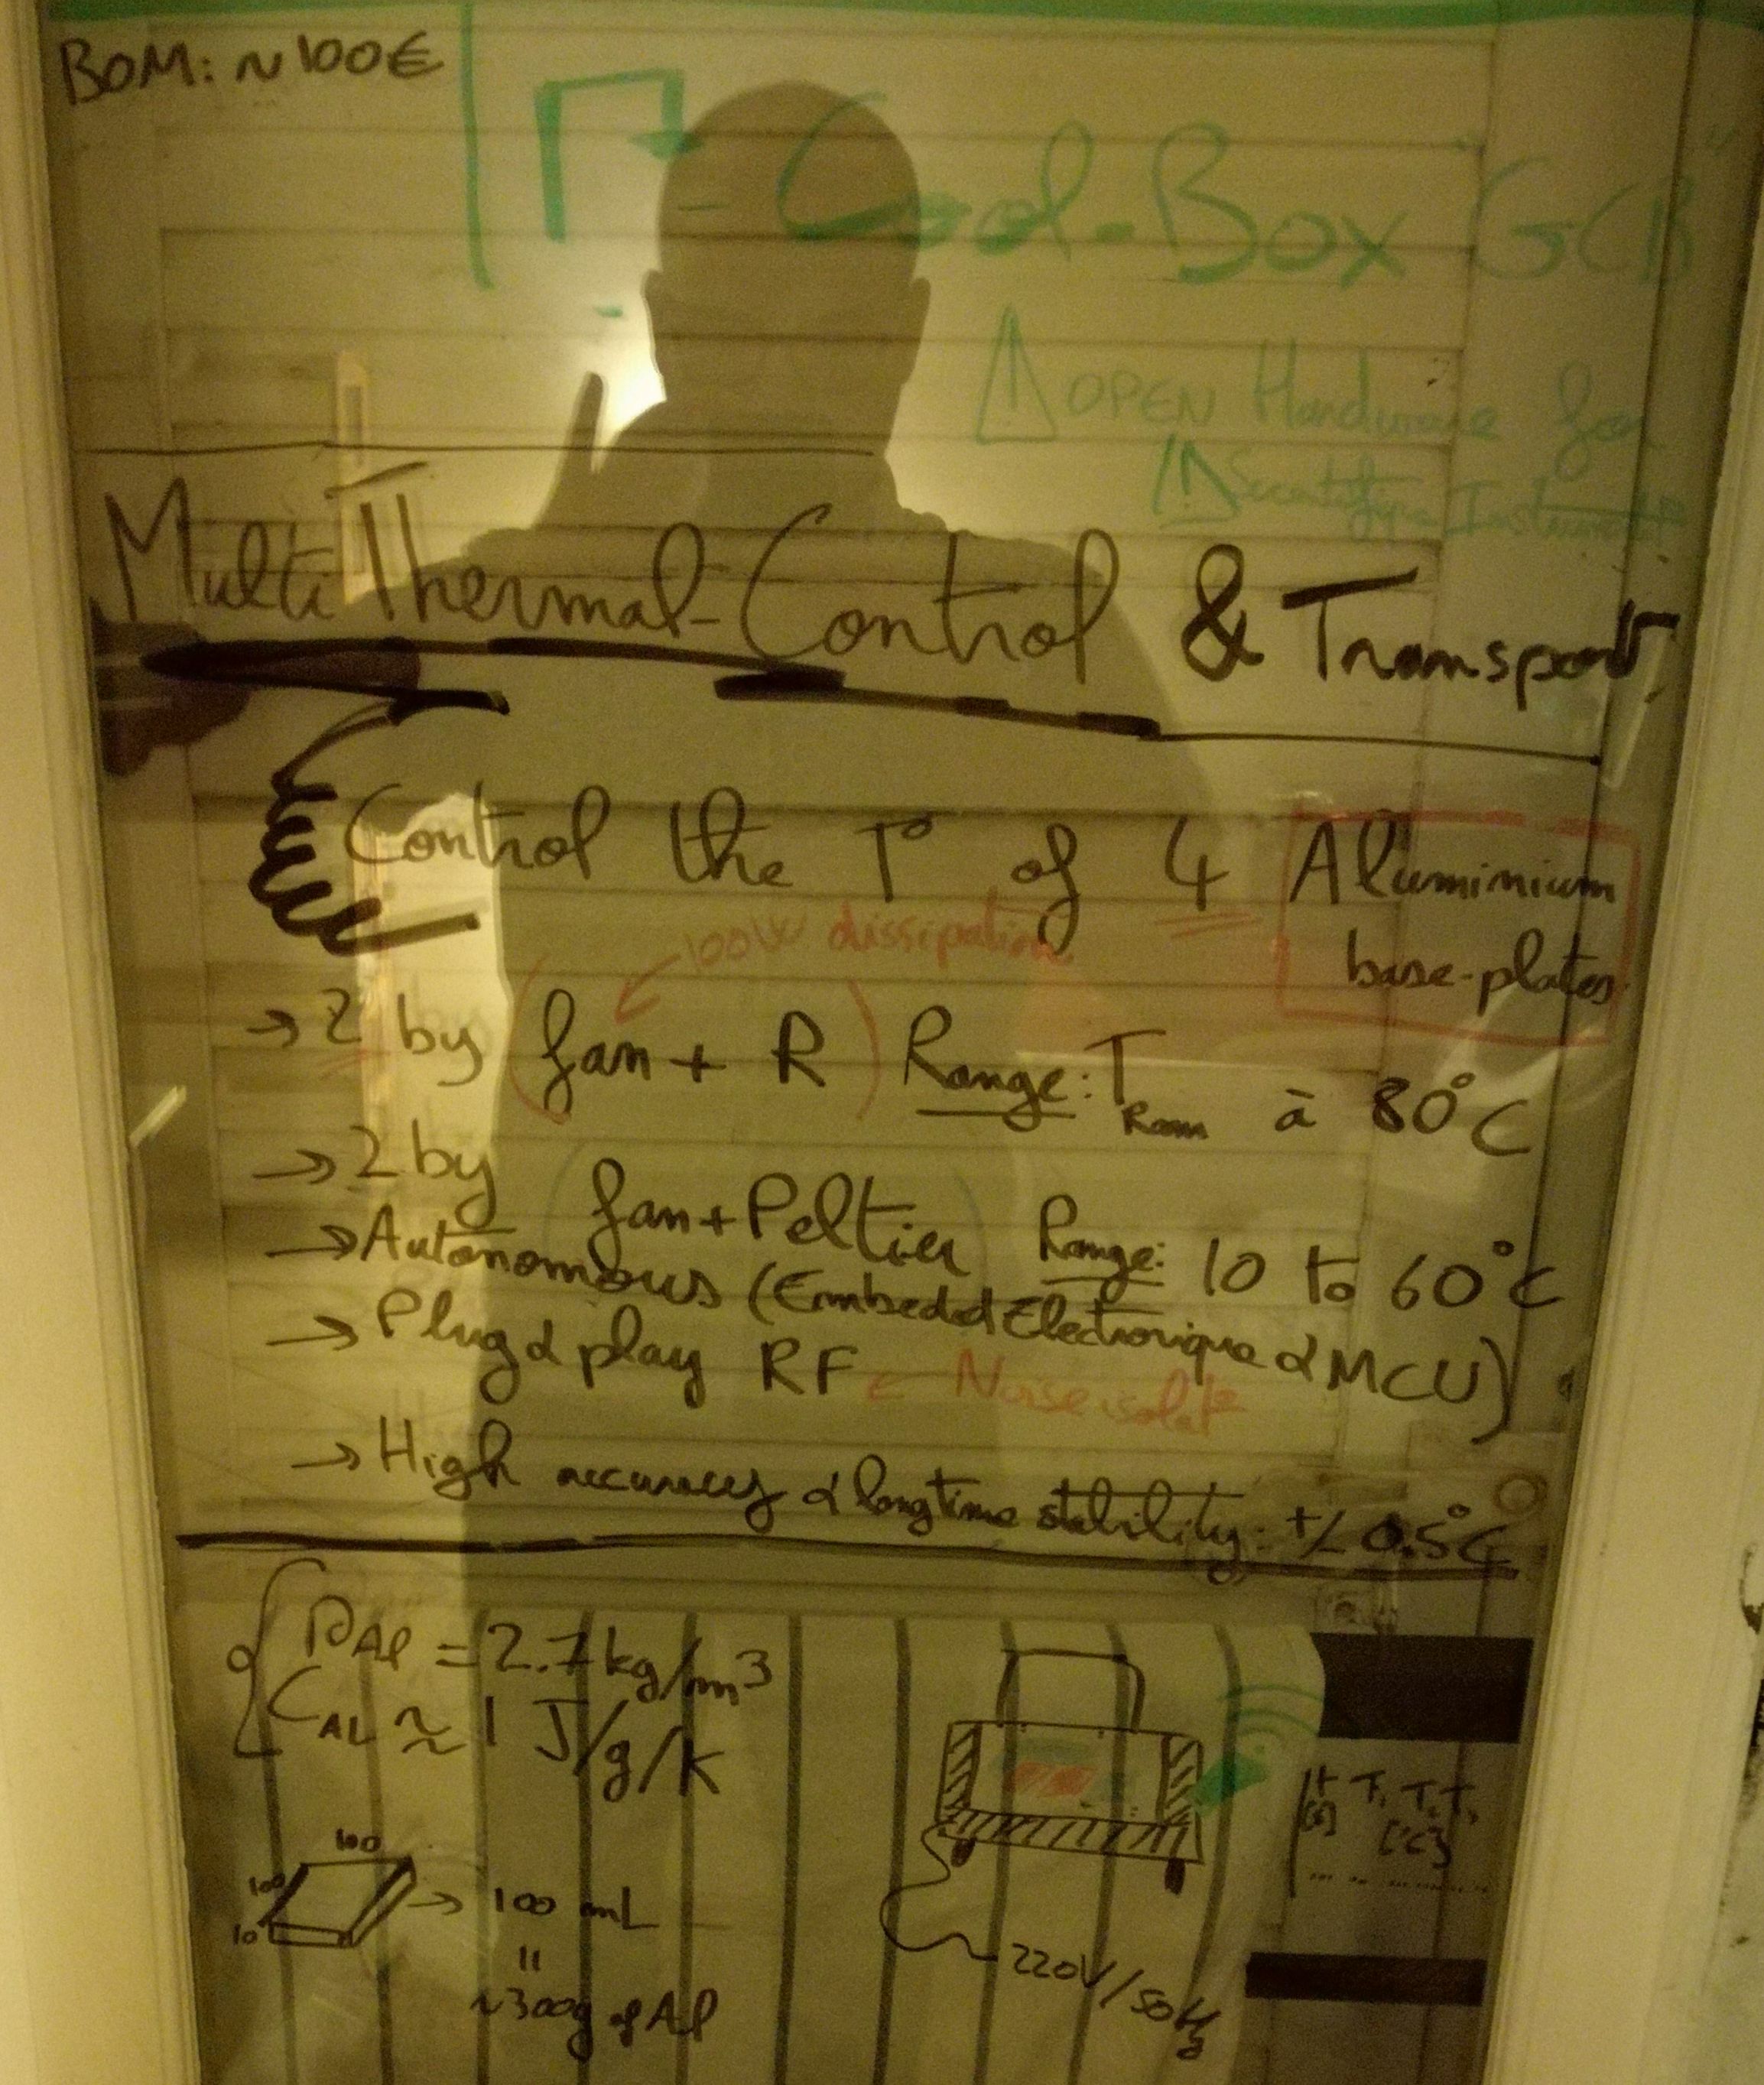 BOM: ~100€
Γ - Cool-Box "GCB"
OPEN Hardware for
Scientifique Instruments
Multi Thermal-Control & Transport
Control the T° of 4 Aluminium
base-plates
100W dissipation
→ 2 by (fan + R) Range: T Room à 80°C
→ 2 by (fan + Peltier) Range: 10 to 60°C
→ Autonomous (Embeded Electronique & MCU)
→ Plug & play RF ← Noise isolate
→ High accuracy & longtime stability: +/- 0.5°C
ρAl = 2.7 kg/m3
CAL ≈ 1 J/g/K
100
100
10
→ 100 mL
=
~300g of Al
220V/50Hz
t T1 T2 T3
[s] [°C]